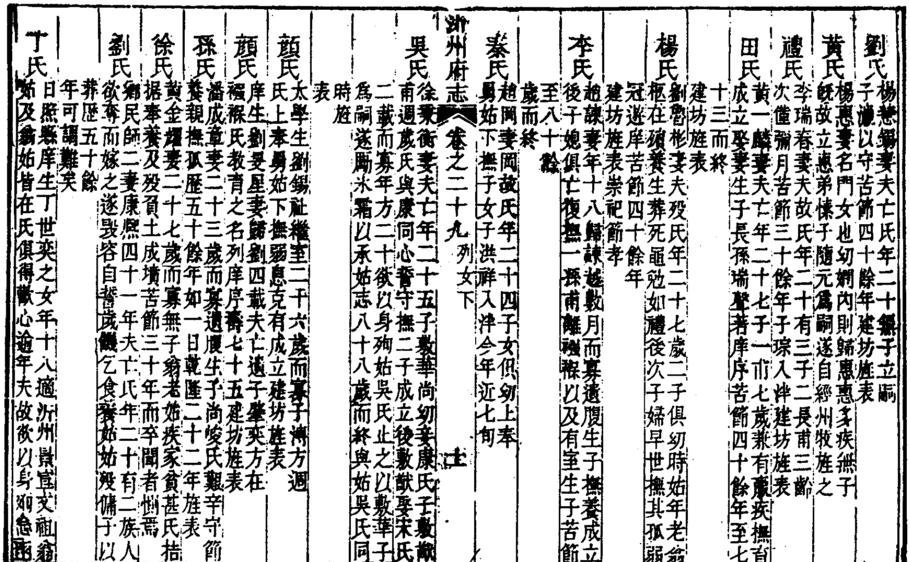 劉氏
楊慧錫妻夫亡氏年二十無子立嗣
子濊以守苦節四十餘年建坊旌表
黃氏
楊惠妻名門女也幼嫻內則歸惠惠多疾無子
旣故立惠弟愫子隨元爲嗣遂自經州牧旌之
禮氏
李瑞春妻夫故氏年二十有三子二長甫三齡
次僅彌月苦節三十餘年子琮入泮建坊旌表
田氏
黃一麟妻夫亡年二十七子一甫七歲兼有廢疾撫育
成立娶妻生子長孫瑞聲著庠序苦節四十餘年至七
十三而終
建坊旌表
楊氏
劉魯彬妻夫歿氏年二十七歲二子俱幼時姑年老翁
柩在殯養生葬死黽勉如禮後次子婦早世撫其孤弱
冠遊庠苦節四十餘年
建坊旌表崇祀節孝
李氏
趙諫妻年十八歸諫越數月而寡遺腹生子撫養成立
後子媳俱亡復撫一孫甫離襁褓以及有室生子苦節
至八十餘
歲而終
秦氏
趙岡妻岡故氏年二十四子女俱幼上奉
舅姑下撫子女子洪祥入泮今年近七旬
沂州府志 卷之二十九 列女下 十一
吳氏
徐秉衡妻夫亡年二十五子敷華尚幼妾康氏子敷猷
甫週歲氏與康同心誓守撫二子成立後敷猷娶宋氏
二載而寡年方二十欲以身殉姑吳氏止之以敷華子
爲嗣遂勵氷霜以承姑志八十八歲而終與姑吳氏同
時旌
表
顏氏
太學生劉錫祉繼室二十六歲而寡子溥方週
氏上奉舅姑下撫弱息克有成立建坊旌表
顏氏
庠生劉昱星妻歸劉四載夫亡遺子肇奕方在
襁褓氏教育之名列庠序壽七十五建坊旌表
孫氏
潘成章妻二十三歲而寡遺腹生子尚峻氏艱辛守節
養親撫孤歷五十餘年如一日乾隆二十二年旌表
徐氏
黃金耀妻二十七歲而寡無子翁老姑疾家貧甚氏拮
据奉養及歿負土成墳苦節三十年而卒聞者惻焉
劉氏
鄉民師二妻康熙四十一年夫亡氏年二十有二族人
欲奪而嫁之遂毀容自誓歲饑乞食養姑姑歿傭于以
葬歷五十餘
年可謂難矣
丁氏
日照縣庠生丁世奕之女年十八適沂州貢宦文祖翁
姑及翁姑皆在氏俱得歡心逾年夫故欲以身殉